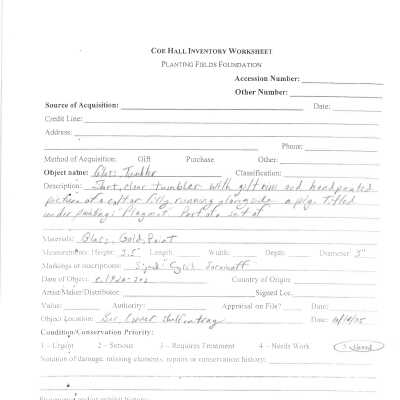 COE HALL INVENTORY WORKSHEET
PLANTING FIELDS FOUNDATION
Accession Number:
Other Number:
Source of Acquisition: Date:
Credit Line:
Address:
Phone:
Method of Acquisition: Gift Purchase Other:
Object name: Glass Tumbler Classification:
Description: Short, clear tumbler with gilt rim and handpainted
picture of a colt or filly running alongside a pig. Titled
under painting: Part of a set of
Materials: Glass, Gold, Paint
Measurements: Height: 3.5" Length: Width: Depth: Diameter: 3"
Markings or inscriptions: Signed Cyril
Date of Object: c. 1920- Country of Origin:
Artist/Maker/Distributor: Signed Loc.
Value: Authority: Appraisal on File? Date:
Object Location: Date:
Condition/Conservation Priority:
1 – Urgent 2 – Serious 3 – Requires Treatment 4 – Needs Work 5 –
Notation of damage, missing elements, repairs or conservation history: